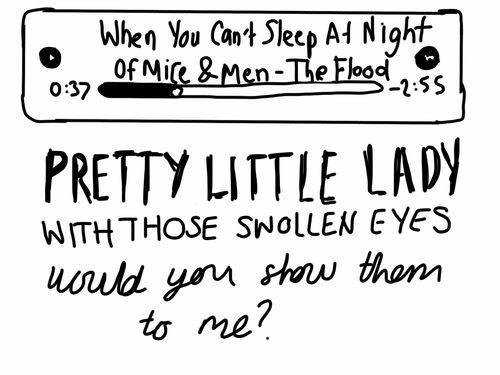 When You Can't Sleep At Night
Of Mice & Men - The Flood
0:37 -2:55
PRETTY LITTLE LADY
WITH THOSE SWOLLEN EYES
would you show them
to me?